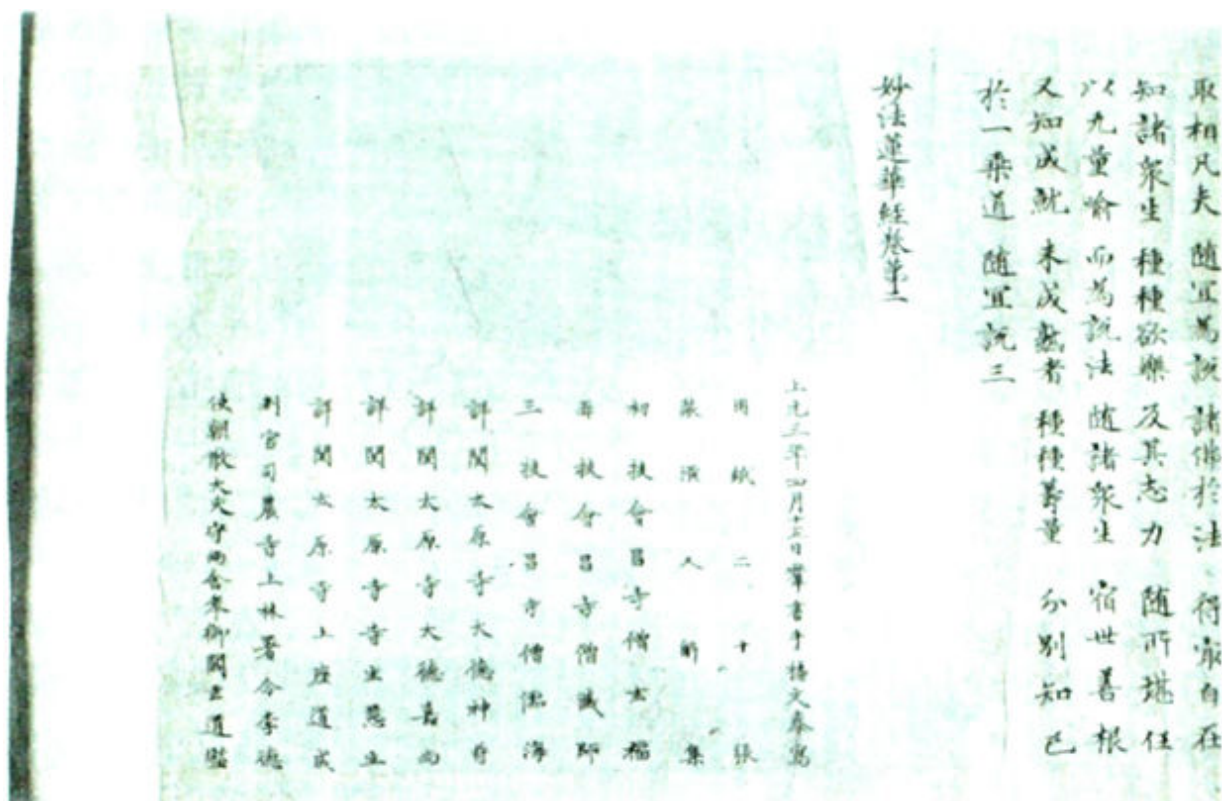 取相凡夫 随宜為説 諸佛於法 得㝡自在
知諸衆生 種種欲樂 及其志力 随所堪任
以无量喻 而為說法 随諸衆生 宿世善根
又知成就 未成就者 種種籌量 分別知已
於一乘道 随宜說三
妙法蓮華經卷第二
上元三年四月十五日羣書手楊文泰寫
用紙二十張
装潢人解集
初校會昌寺僧玄福
再校會昌寺僧藏師
三校會昌寺僧儒海
詳閱太原寺大德神苻
詳閱太原寺大德嘉尚
詳閱太原寺寺主慧立
詳閱太原寺上座道成
判官司農寺上林署令李德
使朝散大夫守尚舍奉御閻玄道監